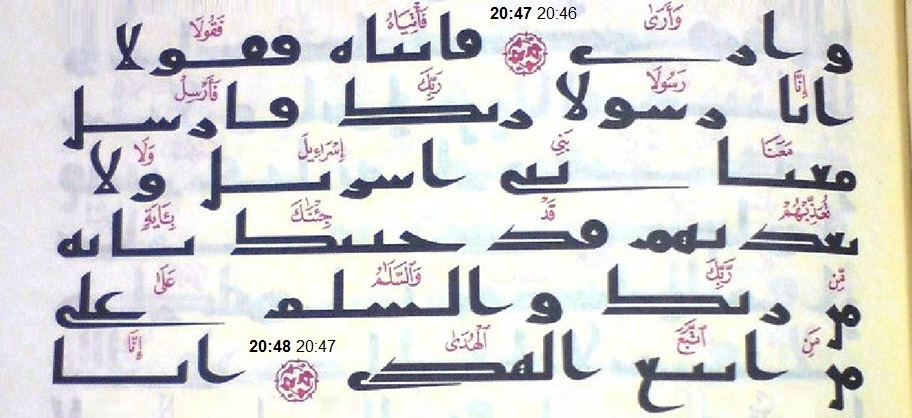 وَأَرَىٰ 20:47 20:46 فَأْتِيَاهُ فَقُولَا
و ارى فاتياه فقولا
إِنَّا رَسُولَا رَبِّكَ فَأَرْسِلْ
انا رسولا ربك فارسل
مَعَنَا بَنِي إِسْرَاءِيلَ وَلَا
معنا بنى اسريل ولا
تُعَذِّبْهُمْ قَدْ جِئْنَٰكَ بِـَٔايَةٍ
تعذبهم قد جينك بايه
مِّن رَّبِّكَ وَالسَّلَٰمُ عَلَىٰ
من ربك و السلم على
مَنِ ٱتَّبَعَ ٱلْهُدَىٰ 20:48 20:47 إِنَّا
من اتبع الهدى انا